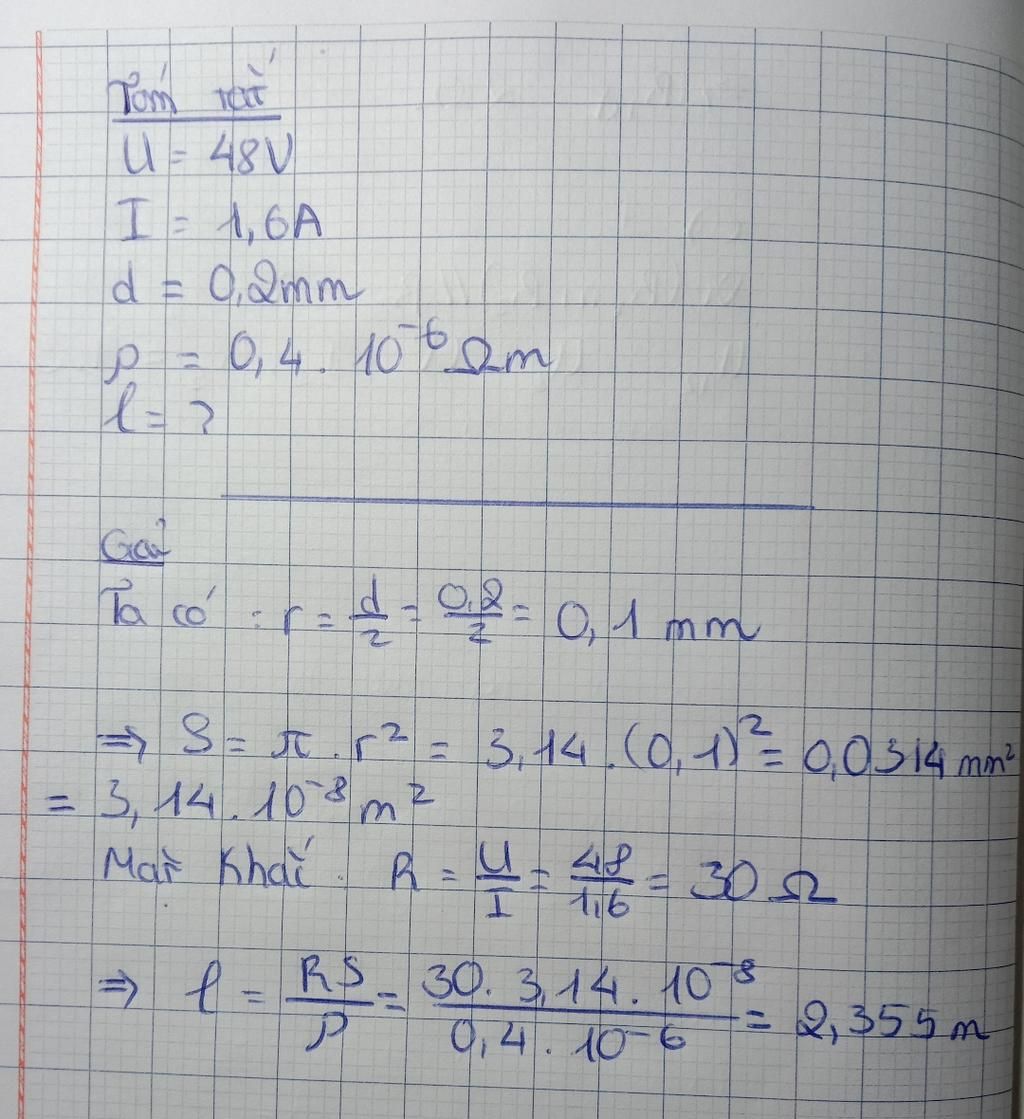 Tóm tắt
U = 48V
I = 1,6A
d = 0,2mm
ρ = 0,4 . 10⁻⁶ Ωm
l = ?
Giải
Ta có : r = d/2 = 0,2/2 = 0,1 mm
⇒ S = π . r² = 3,14 . (0,1)² = 0,0314 mm²
= 3,14 . 10⁻⁸ m²
Mặt khác . R = U/I = 48/1,6 = 30 Ω
⇒ l = RS/ρ = 30 . 3,14 . 10⁻⁸/0,4 . 10⁻⁶ = 2,355 m